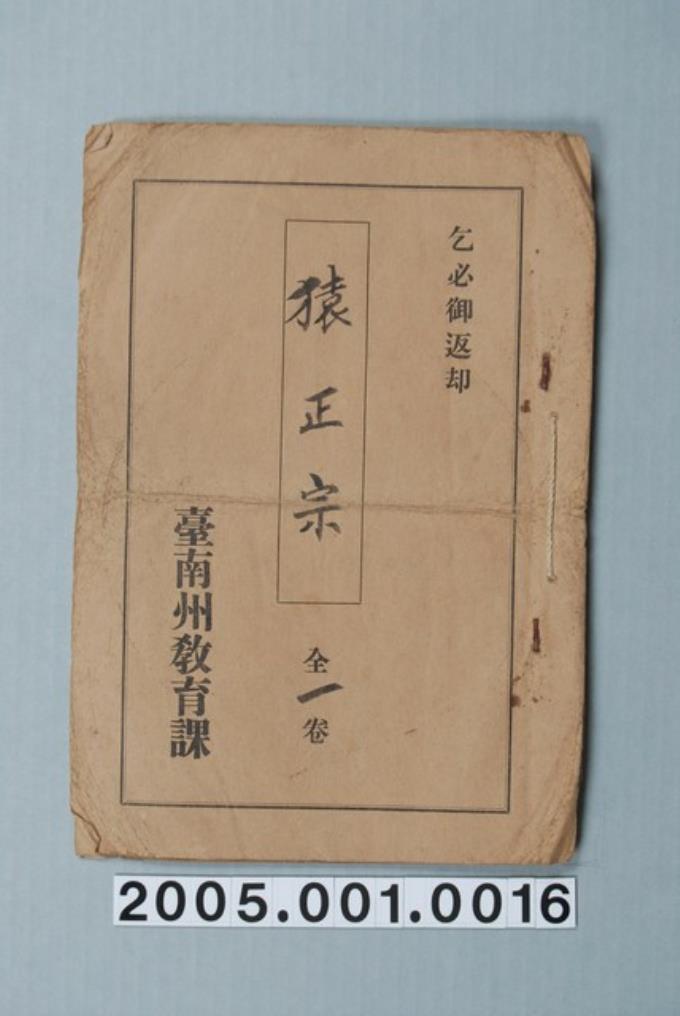 乞必御返却
猿正宗
全一卷
臺南州教育課
2005.001.0016